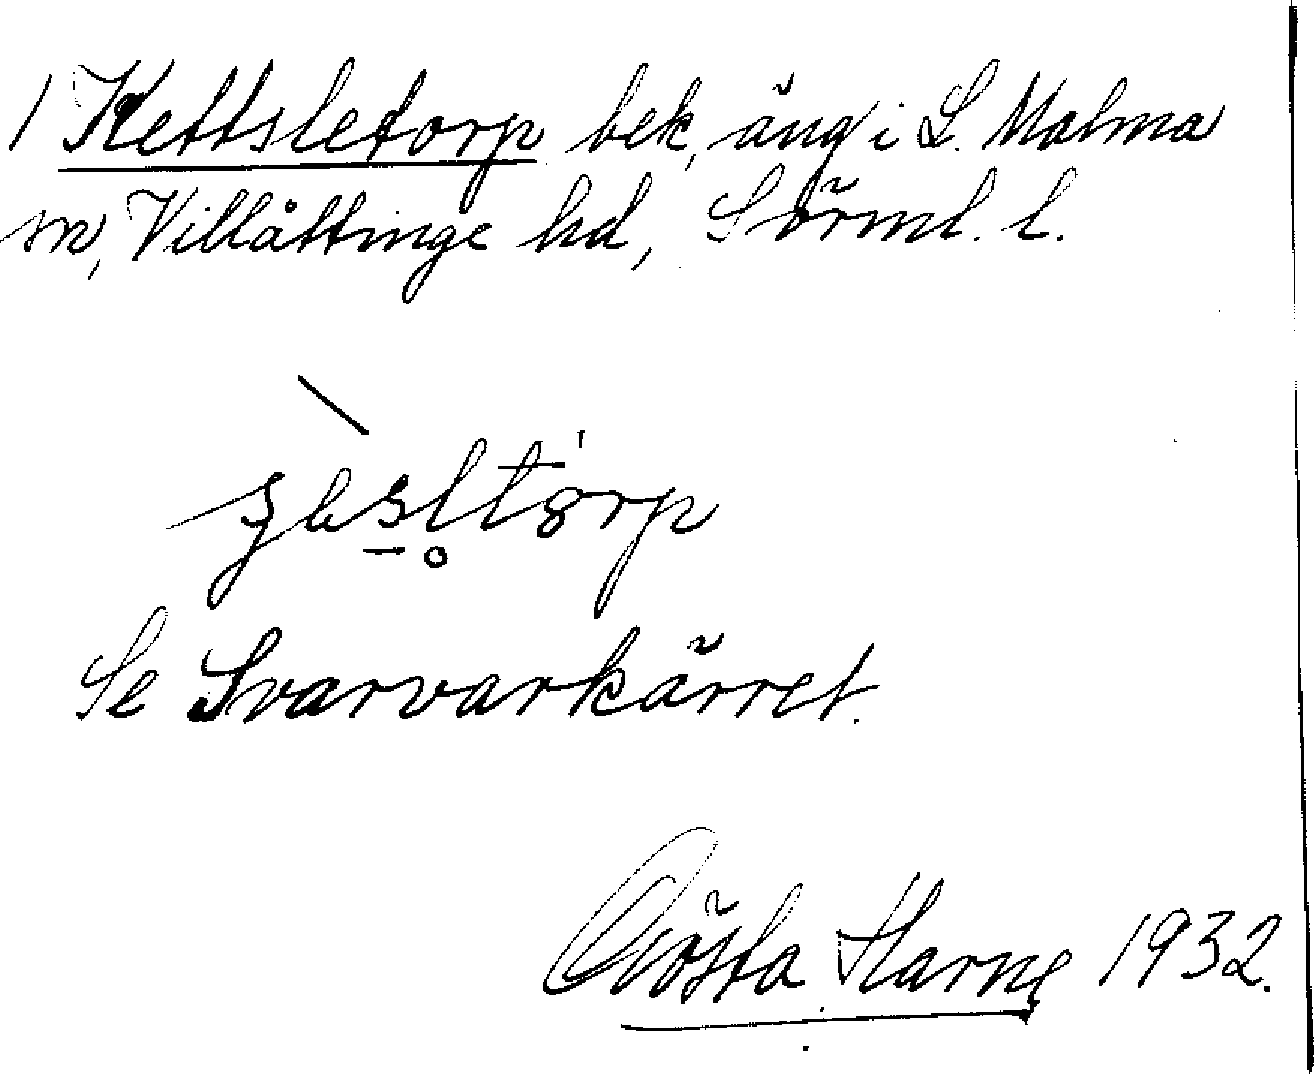 1 Kettsletorp bek, äng i L. Malma
sn, Villåttinge hd, Sörml. l.
Se Svarvarkärret.
Gösta Harne 1932.